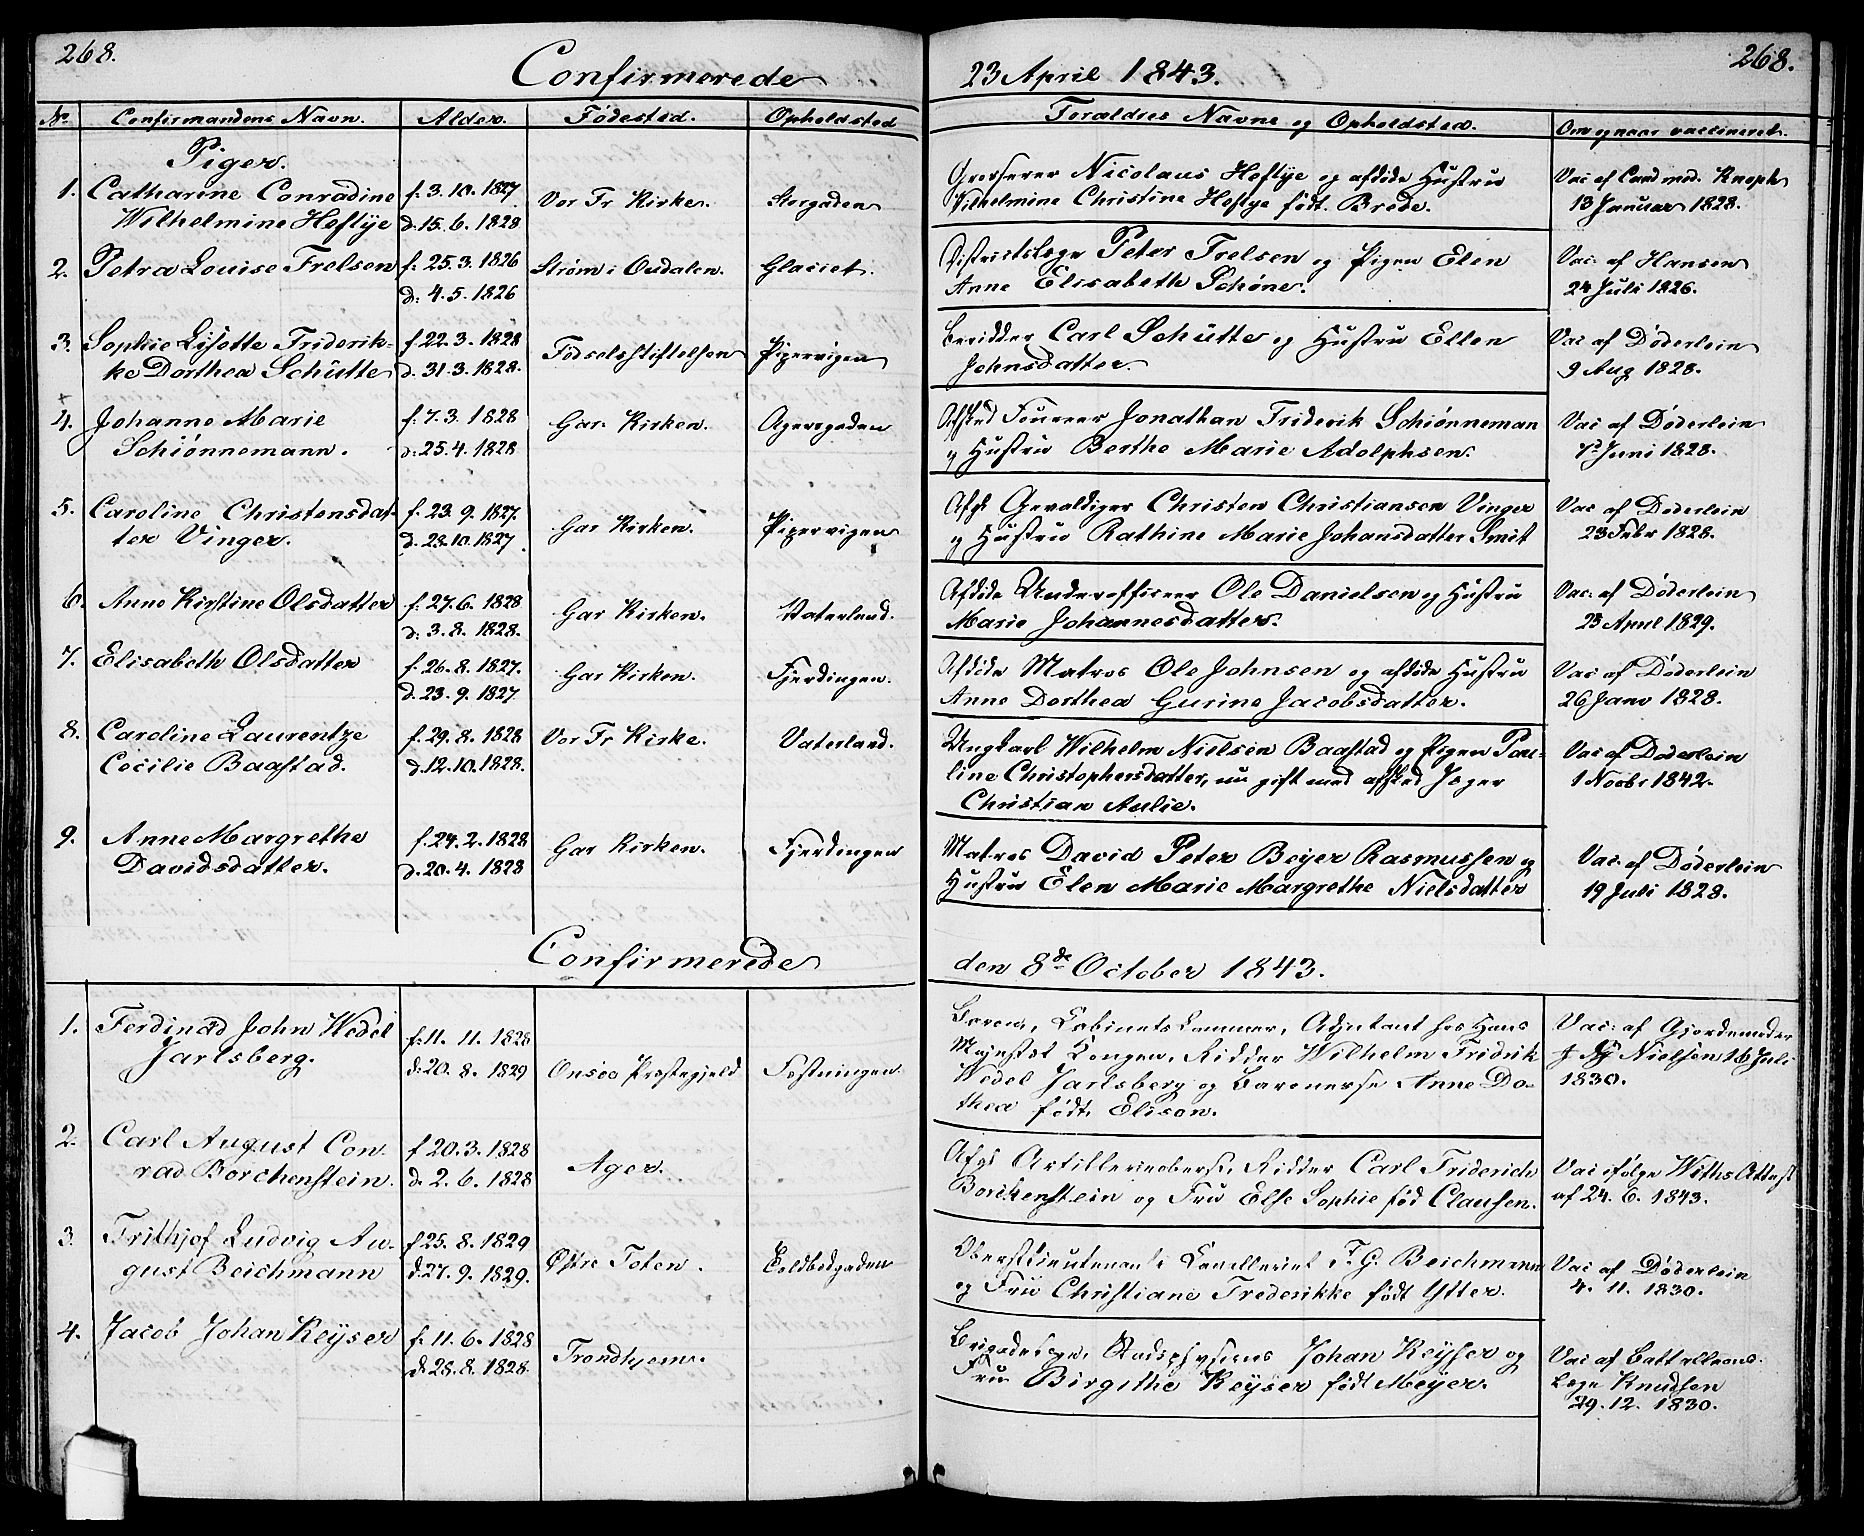 268.
Confirmerede
23 April 1843.
268.
No. Confirmandens Navn. Alder. Fødested. Opholdsted
Forældres Navne og Opholdsted. Om og naar vaccineret.
Piger.
1. Catharine Conradine f. 3. 10. 1827 Vor Fr Kirke. Storgaden
Wilhelmine Heftye d. 15. 6. 1828
Grosserer Nicolaus Heftye og afdøde Hustru
Vilhelmine Christine Heftye født Brede.
Vac af Cand med. Knoph
13 Januar 1828.
2. Petra Louise Frelsen f. 25. 3. 1826 Strøm i Oudalen. Glaciet.
d. 4. 5. 1826
Districtslæge Peter Frelsen og Pigen Elen
Anne Elisabeth Schøne.
Vac. af Hansen
24 Juli 1826.
3. Sophie Lisette Friderik-
ke Dorthea Schütte
f 22. 3. 1828
d. 31. 3. 1828.
Fødselsstiftelsen Pipervigen
Berider Carl Schütte og Hustru Ellen
Johnsdatter.
Vac af Døderlein
9 Aug 1828.
4. Johanne Marie
Schiønnemann.
f. 7. 3. 1828
d. 25. 4. 1828
Gar. Kirken. Agersgaden
Afsked Fourrer Jonathan Friderik Schiønneman
og Hustru Berthe Marie Adolphsen.
Vac af Døderlein
Juni 1828.
5. Caroline Christensdat-
ter Vinger.
f. 23. 9. 1827.
d. 28. 10. 1827.
Gar Kirken. Pipervigen
Afsk Gevaldiger Christen Christiansen Vinger
og Hustru Kathine Marie Johansdatter Smit
Vac af Døderlein
23 Febr 1828.
6. Anne Kirstine Olsdatter
f. 27. 6. 1828
d. 3. 8. 1828.
Gar Kirken. Vaterland.
Afdøde Underofficer Ole Danielsen og Hustru
Marie Johannesdatter.
Vac. af Døderlein
23 April 1829.
7. Elisabeth Olsdatter
f. 26. 8. 1827.
d. 23. 9. 1827.
Gar Kirken. Fjerdingen.
Afdøde Matros Ole Johnsen og afdøde Hustru
Anne Dorthea Gurine Jacobsdatter.
Vac af Døderlein
26 Janv 1828.
8. Caroline Laurentze
Cecilie Baastad.
f. 29. 8. 1828
d. 12. 10. 1828.
Vor Fr Kirke. Vaterland.
Ungkarl Wilhelm Nielsen Baastad og Pigen Pau-
line Christophersdatter, nu gift med afsked Jæger
Christian Aulie.
Vac af Døderlein
1 Novbr 1842.
9. Anne Margrethe
Davidsdatter.
f. 24. 2. 1828
d. 20. 4. 1828
Gar Kirken. Fjerdingen
Matros David Peter Beyer Rasmussen og
Hustru Elen Marie Margrethe Nielsdatter
Vac. af Døderlein
19 Juli 1828.
Confirmerede
den 8de October 1843.
1. Ferdinad John Wedel
Jarlsberg.
f. 11. 11. 1828
d. 20. 8. 1829
Onsøe Præstegjeld Festningen
Baron, Cabinetskammer, Adjutant hos Hans
Majestæt Kongen, Ridder Wilhelm Fridrik
Wedel Jarlsberg og Baronesse Anne Do-
thea født Elison.
Vac. af Gjordemoder
Nielsen 16 Juli
1830.
2. Carl August Con-
rad Borchenstein.
f 20. 3. 1828
d. 2. 6. 1828
Ager.
Afsk Artillerieoberst, Ridder Carl Friderich
Borchenstein og Fru Else Sophie fød Clausen.
Vac ifølge Withs Attest
af 24. 6. 1843.
3. Frithjof Ludvig Au-
gust Beichmann
f 25. 8. 1829
d. 27. 9. 1829.
Østre Toten. Voldbodgaden
Oberstlieutenant i Cavalleriet F. G. Beichmann
og Frü Christiane Frederikke født Ytter.
Vac af Døderlein
4. 11. 1830.
4. Jacob Johan Keyser
f. 11. 6. 1828
d. 28. 8. 1828.
Trondhjem.
Brigadelæge, Stadsphysicus Johan Keyser og
Fru Birgithe Keyser født Meyer.
Vac af Battallions-
Læge Knudsen
29. 12. 1830.